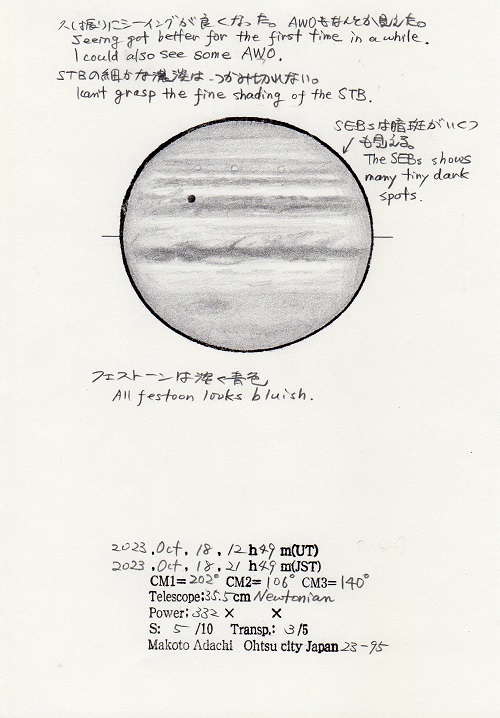 久し振りにシーイングが良くなった。AWOもなんとか見えた。
Seeing got better for the first time in a while.
I could also see some AWO.
STBの細かな濃淡は、つかみ切れない。
I can't grasp the fine shading of the STB.
SEBsは暗斑がいくつ
も見える。
The SEBs shows
many tiny dark
spots.
フェストーンは淡く青色
All festoon looks bluish.
2023, Oct, 18, 12 h 49 m(UT)
2023, Oct, 18, 21 h 49 m(JST)
CM1= 202° CM2= 106° CM3= 140°
Telescope: 35.5 cm Newtonian
Power: 332 × ×
S: 5 /10 Transp.: 3/5
Makoto Adachi Ohtsu city Japan 23-95